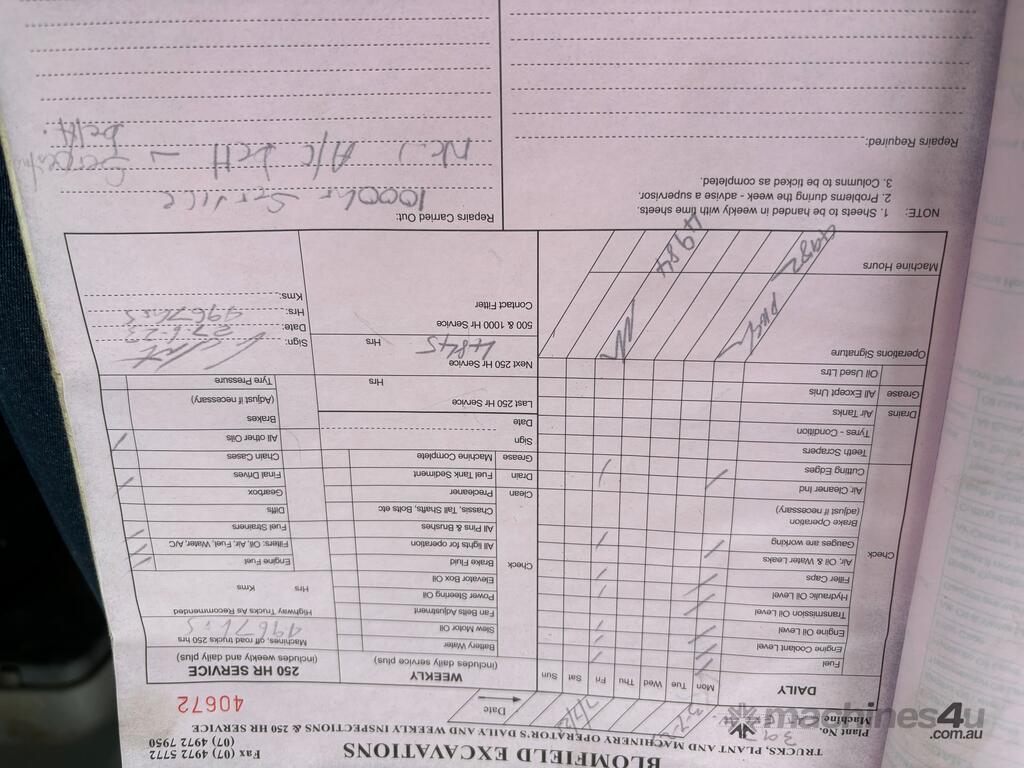 BLOMFIELD EXCAVATIONS
TRUCKS, PLANT AND MACHINERY DAILY OPERATOR'S AND WEEKLY INSPECTIONS & 250 HR SERVICE
(07) 4972 7950
Fax (07) 4972 5772
Plant No.
Machine
40672
Date
DAILY
Mon
Tue
Wed
Thu
Fri
Sat
Sun
Check
Fuel
Engine Coolant Level
Engine Oil Level
Transmission Oil Level
Hydraulic Oil Level
Filler Caps
Air, Oil & Water Leaks
Gauges are working
Brake Operation
(adjust if necessary)
Air Cleaner Ind
Cutting Edges
Teeth Scrapers
Tyres - Condition
Drains
Air Tanks
Grease
All Except Unis
Oil Used Ltrs
Operations Signature
Machine Hours
4982
4984
WEEKLY
(includes daily service plus)
Check
Battery Water
Slew Motor Oil
Fan Belts Adjustment
Power Steering Oil
Elevator Box Oil
Brake Fluid
All lights for operation
All Pins & Brushes
Chassis, Tail Shafts, Bolts etc
Clean
Precleaner
Drain
Fuel Tank Sediment
Grease
Machine Complete
Sign
Date
Last 250 Hr Service
Hrs
Next 250 Hr Service
4845
Hrs
500 & 1000 Hr Service
Contact Fitter
250 HR SERVICE
(includes weekly and daily plus)
Machines, off road trucks 250 hrs
Highway Trucks As Recommended
Hrs Kms
Engine Fuel
Filters: Oil, Air, Fuel, Water, A/C
Fuel Strainers
Diffs
Gearbox
Final Drives
Chain Cases
All other Oils
Brakes
(Adjust if necessary)
Tyre Pressure
Sign:
Date: 27.6.23
Hrs: 4967hrs
Kms:
NOTE: 1. Sheets to be handed in weekly with time sheets.
2. Problems during the week - advise a supervisor.
3. Columns to be ticked as completed.
Repairs Required:
Repairs Carried Out:
1000hr Service
New A/C belt - Serpentine
belt.
machines4u
.com.au